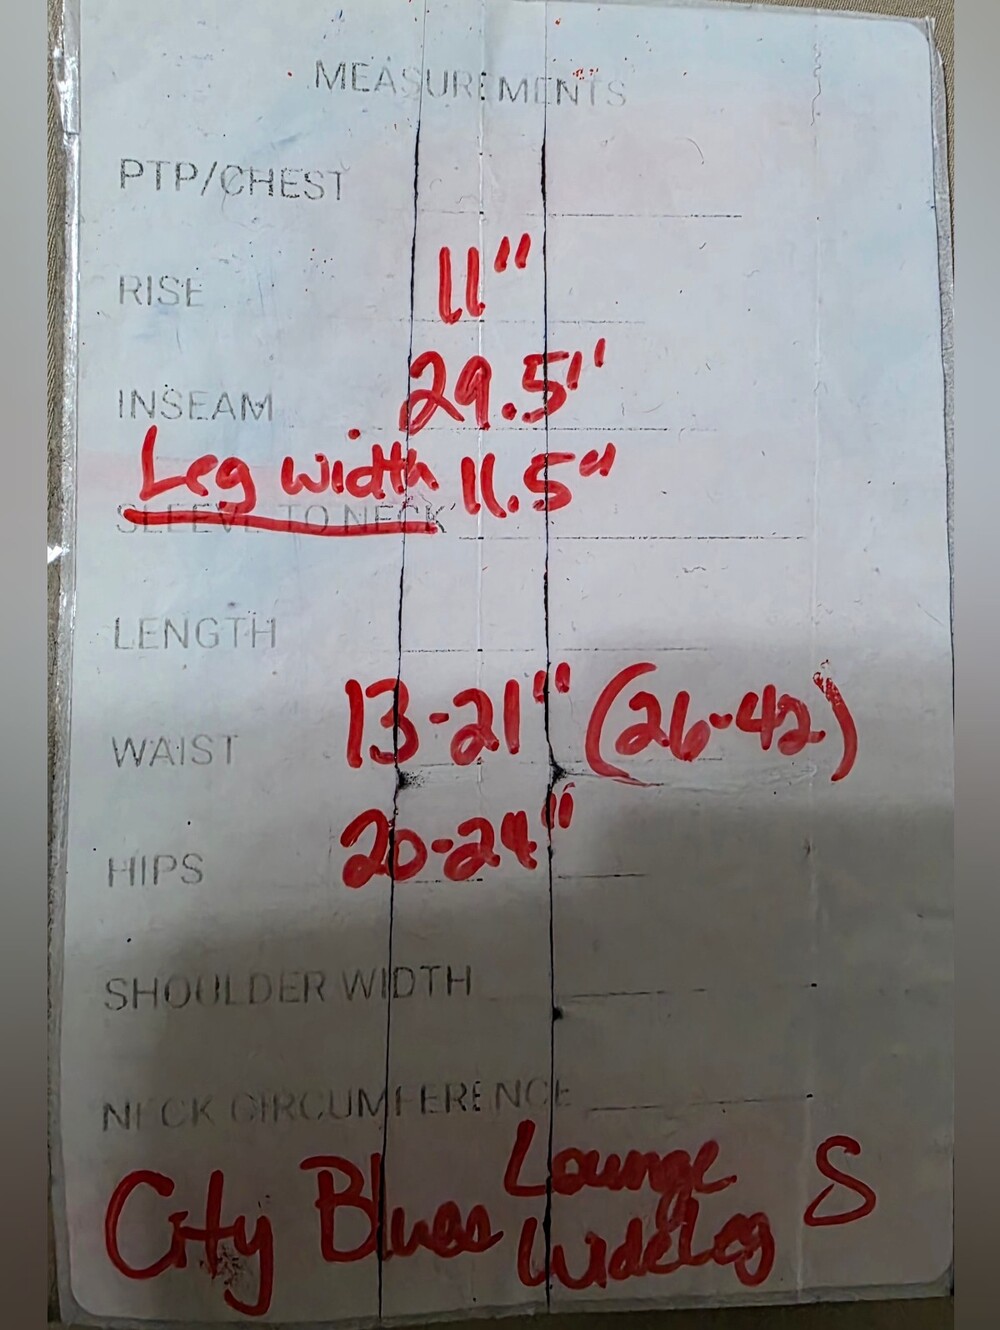 MEASUREMENTS
PTP/CHEST
RISE 11"
INSEAM 29.5"
Leg width 11.5"
SLEEVE TO NECK
LENGTH
WAIST 13-21" (26-42)
HIPS 20-24"
SHOULDER WIDTH
NECK CIRCUMFERENCE
City Blues Lounge WideLeg S